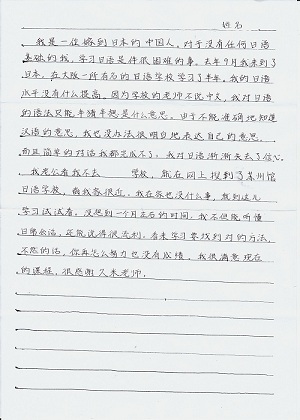 姓名
我是一位嫁到日本的中国人。对于没有任何日语
基础的我，学习日语是件很困难的事。去年9月我来到了
日本，在大阪一所有名的日语学校学习了半年。我的日语
水平没有什么提高。因为学校的老师不说中文，我对日语
的语法只能半猜半想是什么意思。由于不能准确地知道
汉语的意思，我也没办法很明白地表达自己的意思。
而且简单的对话我都完成不了。我对日语渐渐失去了信心。
我老公看我不去 学校，就在网上搜到了苏州馆
日语学校，离我家很近。我在家也没什么事，就到这儿
学习试试看。没想到一个月左右的时间，我不但能听懂
日常会话，还能说得很流利。看来学习要找到对的方法，
不然的话，你再怎么努力也没有成绩。我很满意现在
的课程，很感谢久米老师。